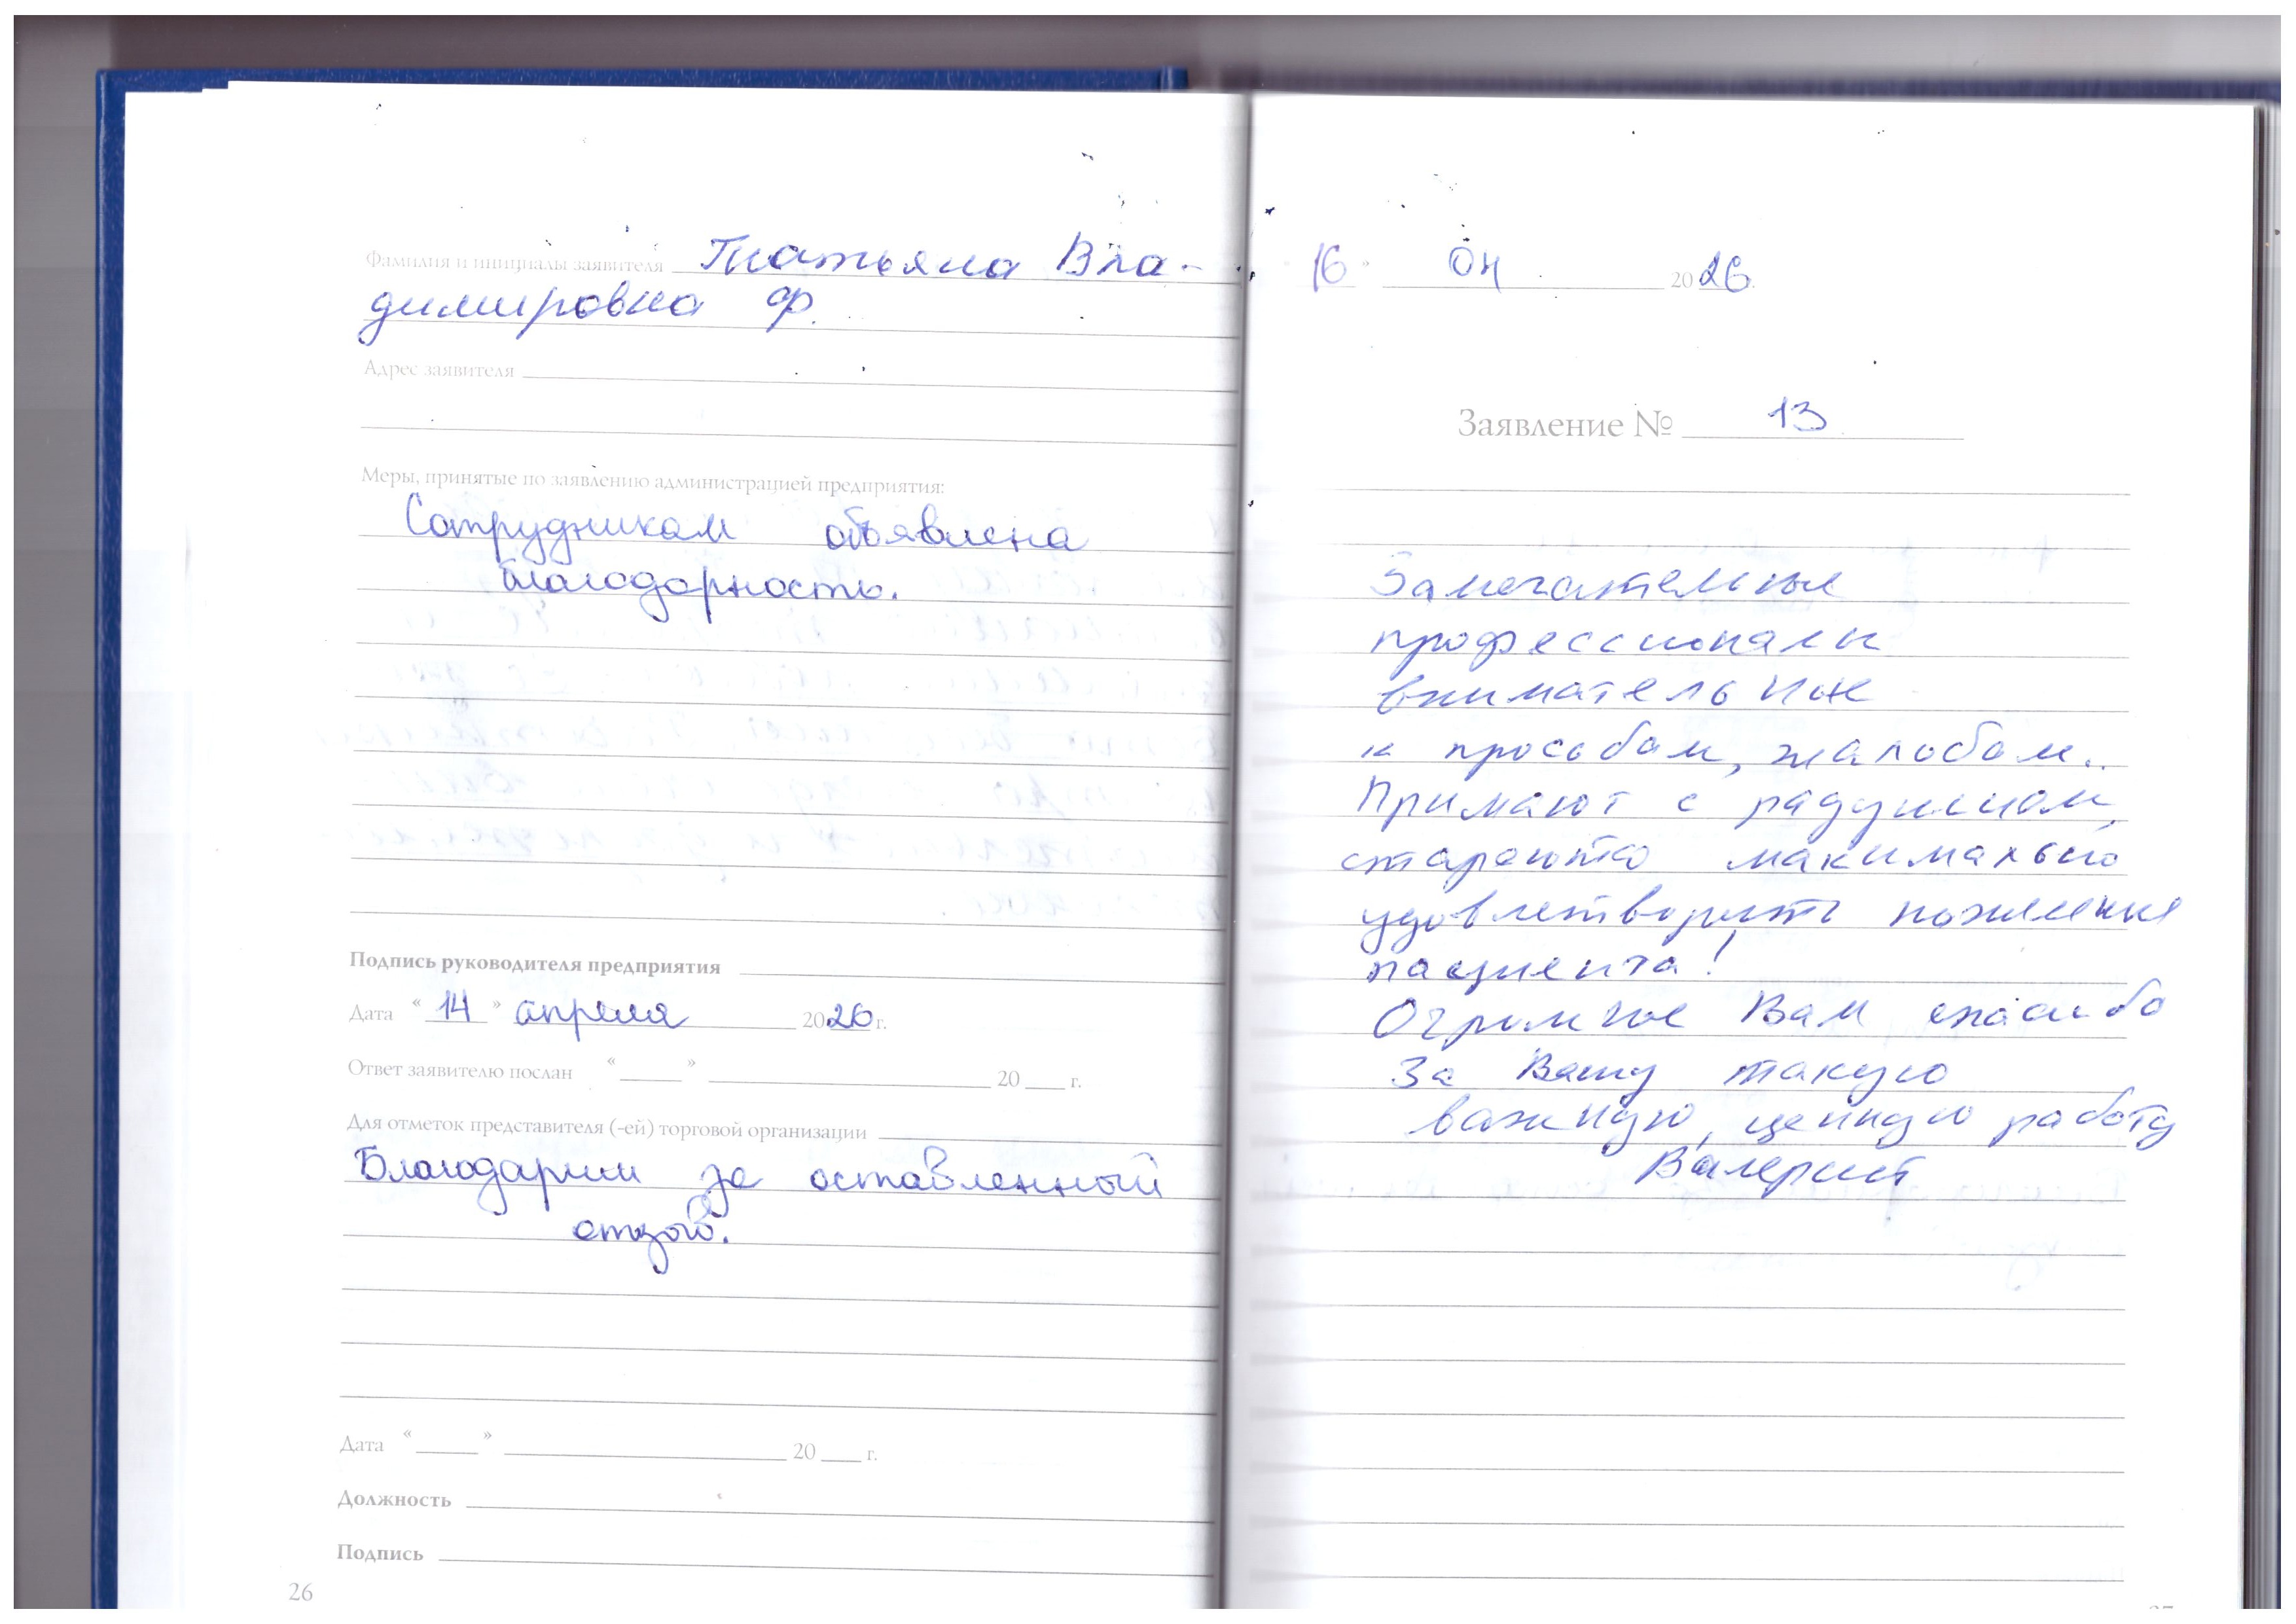 Фамилия и инициалы заявителя Татьяна Вла-
димировна Ф.
Адрес заявителя
Меры, принятые по заявлению администрацией предприятия:
Сотрудникам объявлена
благодарность.
Подпись руководителя предприятия
Дата "14" апреля 2026 г.
Ответ заявителю послан " " 20 г.
Для отметок представителя (-ей) торговой организации
Благодарим за оставленный
отзыв.
Дата " " 20 г.
Должность
Подпись
26
16 " 04 2026.
Заявление № 13
Замечательные
профессионалы
внимательные
к просьбам, жалобам..
Примают с радушием,
стараются макимально
удовлетворить пожелания
пациента!
Огромное Вам спасибо
За Вашу такую
важную, ценную работу